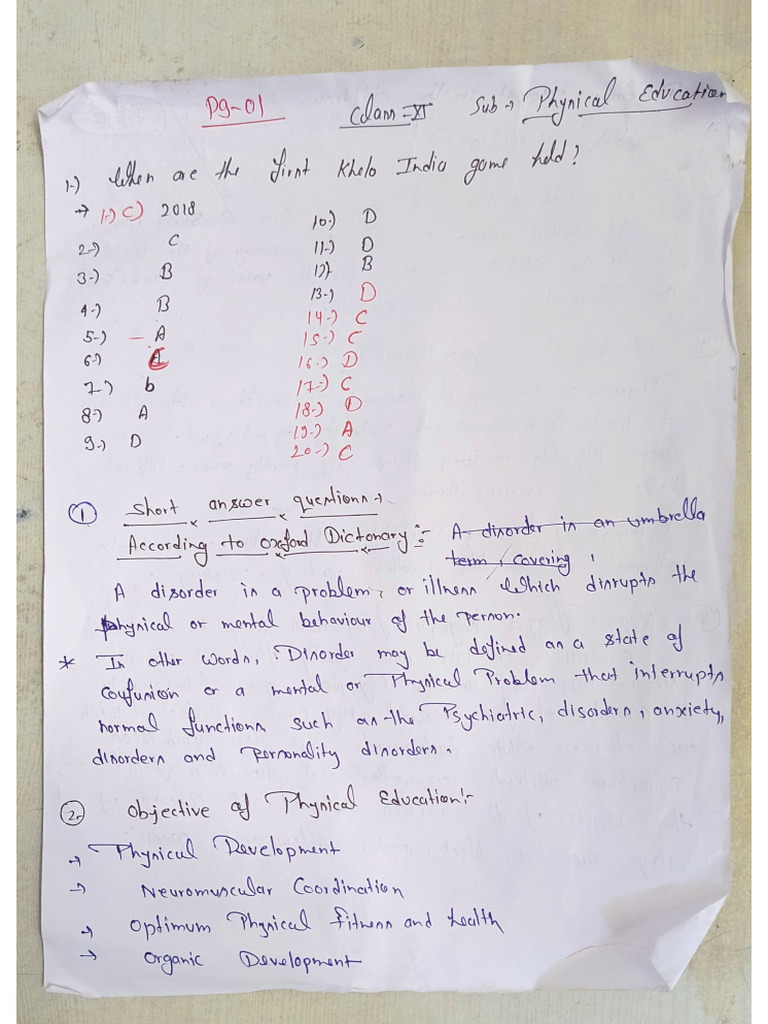 Pg-01 Class = XI Sub → Physical Education
1-) When are the first Khelo India game held?
→ 1-) C) 2018
2-) C
3-) B
4-) B
5-) – A
6-) C
7-) b
8-) A
9-) D
10-) D
11-) D
12) B
13-) D
14-) C
15-) C
16-) D
17-) C
18-) D
19-) A
20-) C
① Short answer questions →
According to Oxford Dictonary :- A disorder is an umbrella
term, covering,
A disorder is a problem, or illness which disrupts the
physical or mental behaviour of the person.
* In other words, Disorder may be defined as a state of
confusion or a mental or Physical Problem that interrupts
normal functions such as the Psychiatric, disorders, anxiety,
disorders and personality disorders.
② Objective of Physical Education:-
→ Physical Development
→ Neuromuscular Coordination
→ Optimum Physical fitness and health
→ Organic Development